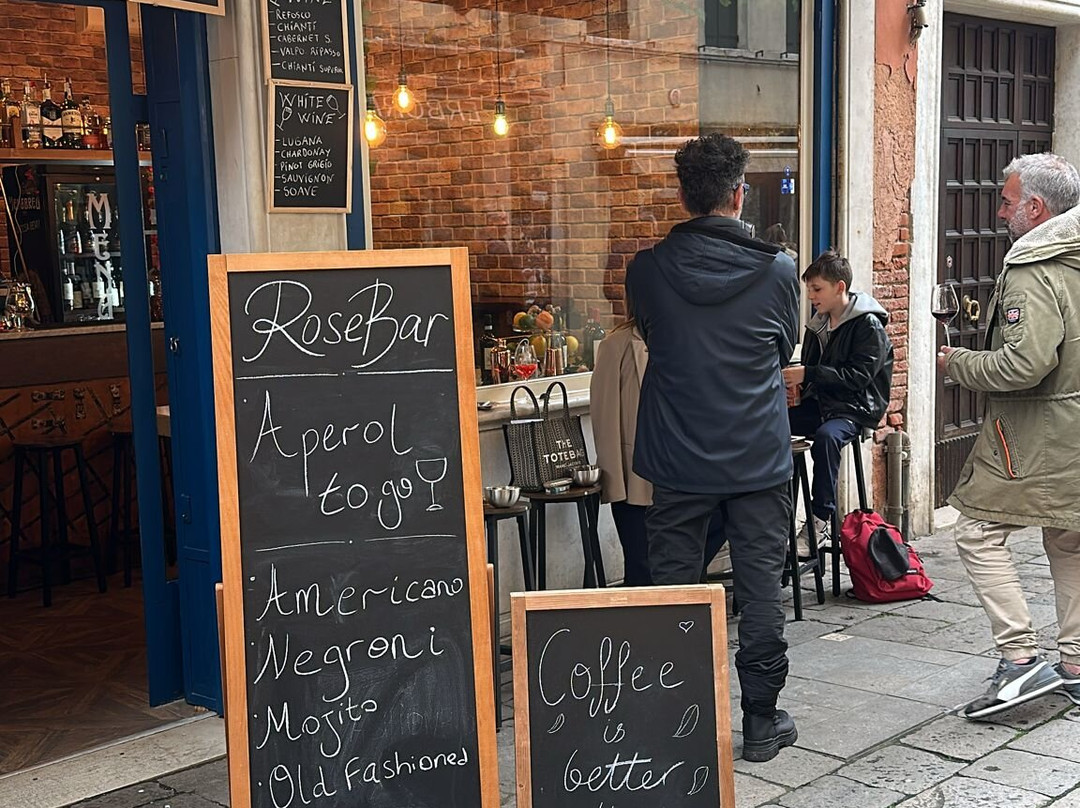 WINE
-REFOSCO
-CHIANTI
-CABERNET S.
-VALPO. RIPASSO
-CHIANTI SUPERIOR
WHITE
WINE
-LUGANA
-CHARDONAY
-PINOT GRIGIO
-SAUVIGNON
-SOAVE
MENU
RoseBar
Aperol
to go
·Americano
·Negroni
·Mojito
·Old Fashioned
THE
TOTE BAG
Coffee
is
better